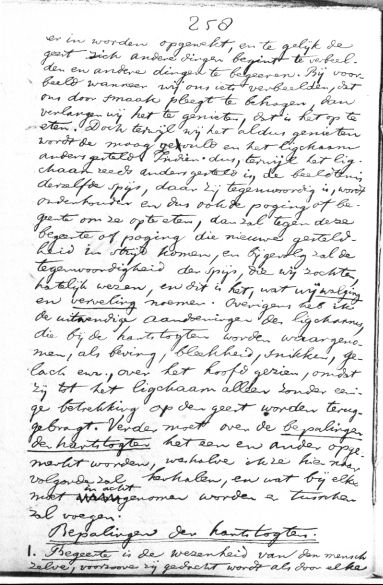 258
er in worden opgewekt, en te gelijk de
geest zich andere dingen begint te verbeel-
den en andere dingen te begeeren. Bij voor-
beeld wanneer wij ons iets verbeelden, dat
ons door smaak pleegt te behagen, dan
verlangen wij het te genieten, dat is het op te
eten. Doch terwijl wij het aldus genieten
wordt de maag gevuld en het ligchaam
anders gesteld. Indien dus, terwijl het lig-
chaam reeds anders gesteld is, de beeldtenis
derzelfde spijs, daar zij tegenwoordig is, wordt
onderhouden en dus ook de poging of be-
geerte om ze op te eten, dan zal tegen deze
begeerte of poging die nieuwe gesteld-
heid in strijd komen, en bijgevolg zal de
tegenwoordigheid der spijs, die wij zochten,
hatelijk wezen, en dit is het, wat wij walging
en verveling noemen. Overigens heb ik
de uitwendige aandoeningen des ligchaams,
die bij de hartstogten worden waargeno-
men, als beving, bleekheid, snikken, ge-
lach enz., over het hoofd gezien, omdat
zij tot het ligchaam alleen zonder eeni-
ge betrekking op den geest worden terug-
gebragt. Verder moet over de bepalingen
der hartstogten het een en ander opge-
merkt worden, weshalve ik ze hier naar
volgorde zal herhalen, en wat bij elke
moet in acht genomen worden er tusschen
zal voegen.
Bepalingen der hartstogten.
1. Begeerte is de wezenheid van den mensch
zelve, voorzoove zij gedacht wordt als door elke